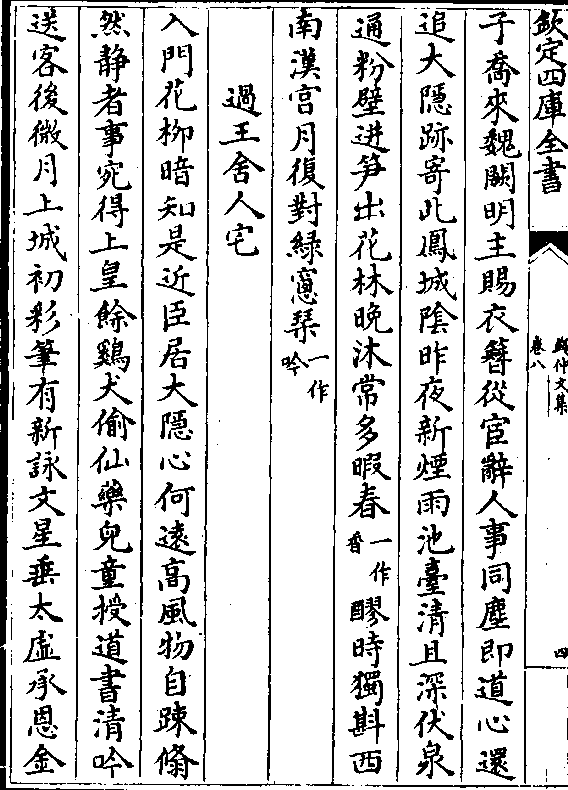 欽定四庫全書
錢仲文集
卷八
四
子喬來魏闕明主賜衣簪從宦辭人事同塵即道心還
追大隠跡寄此鳳城陰昨夜新煙雨池臺清且深伏泉
通粉壁迸笋出花林晩沐常多暇春一作香醪時獨斟西
南漢宫月復對緑窻琴一作吟
過王舍人宅
入門花柳暗知是近臣居大隠心何遠髙風物自踈翛
然静者事宛得上皇餘鷄犬偷仙藥兒童授道書清吟
送客後微月上城初彩筆有新詠文星垂太虚承恩金